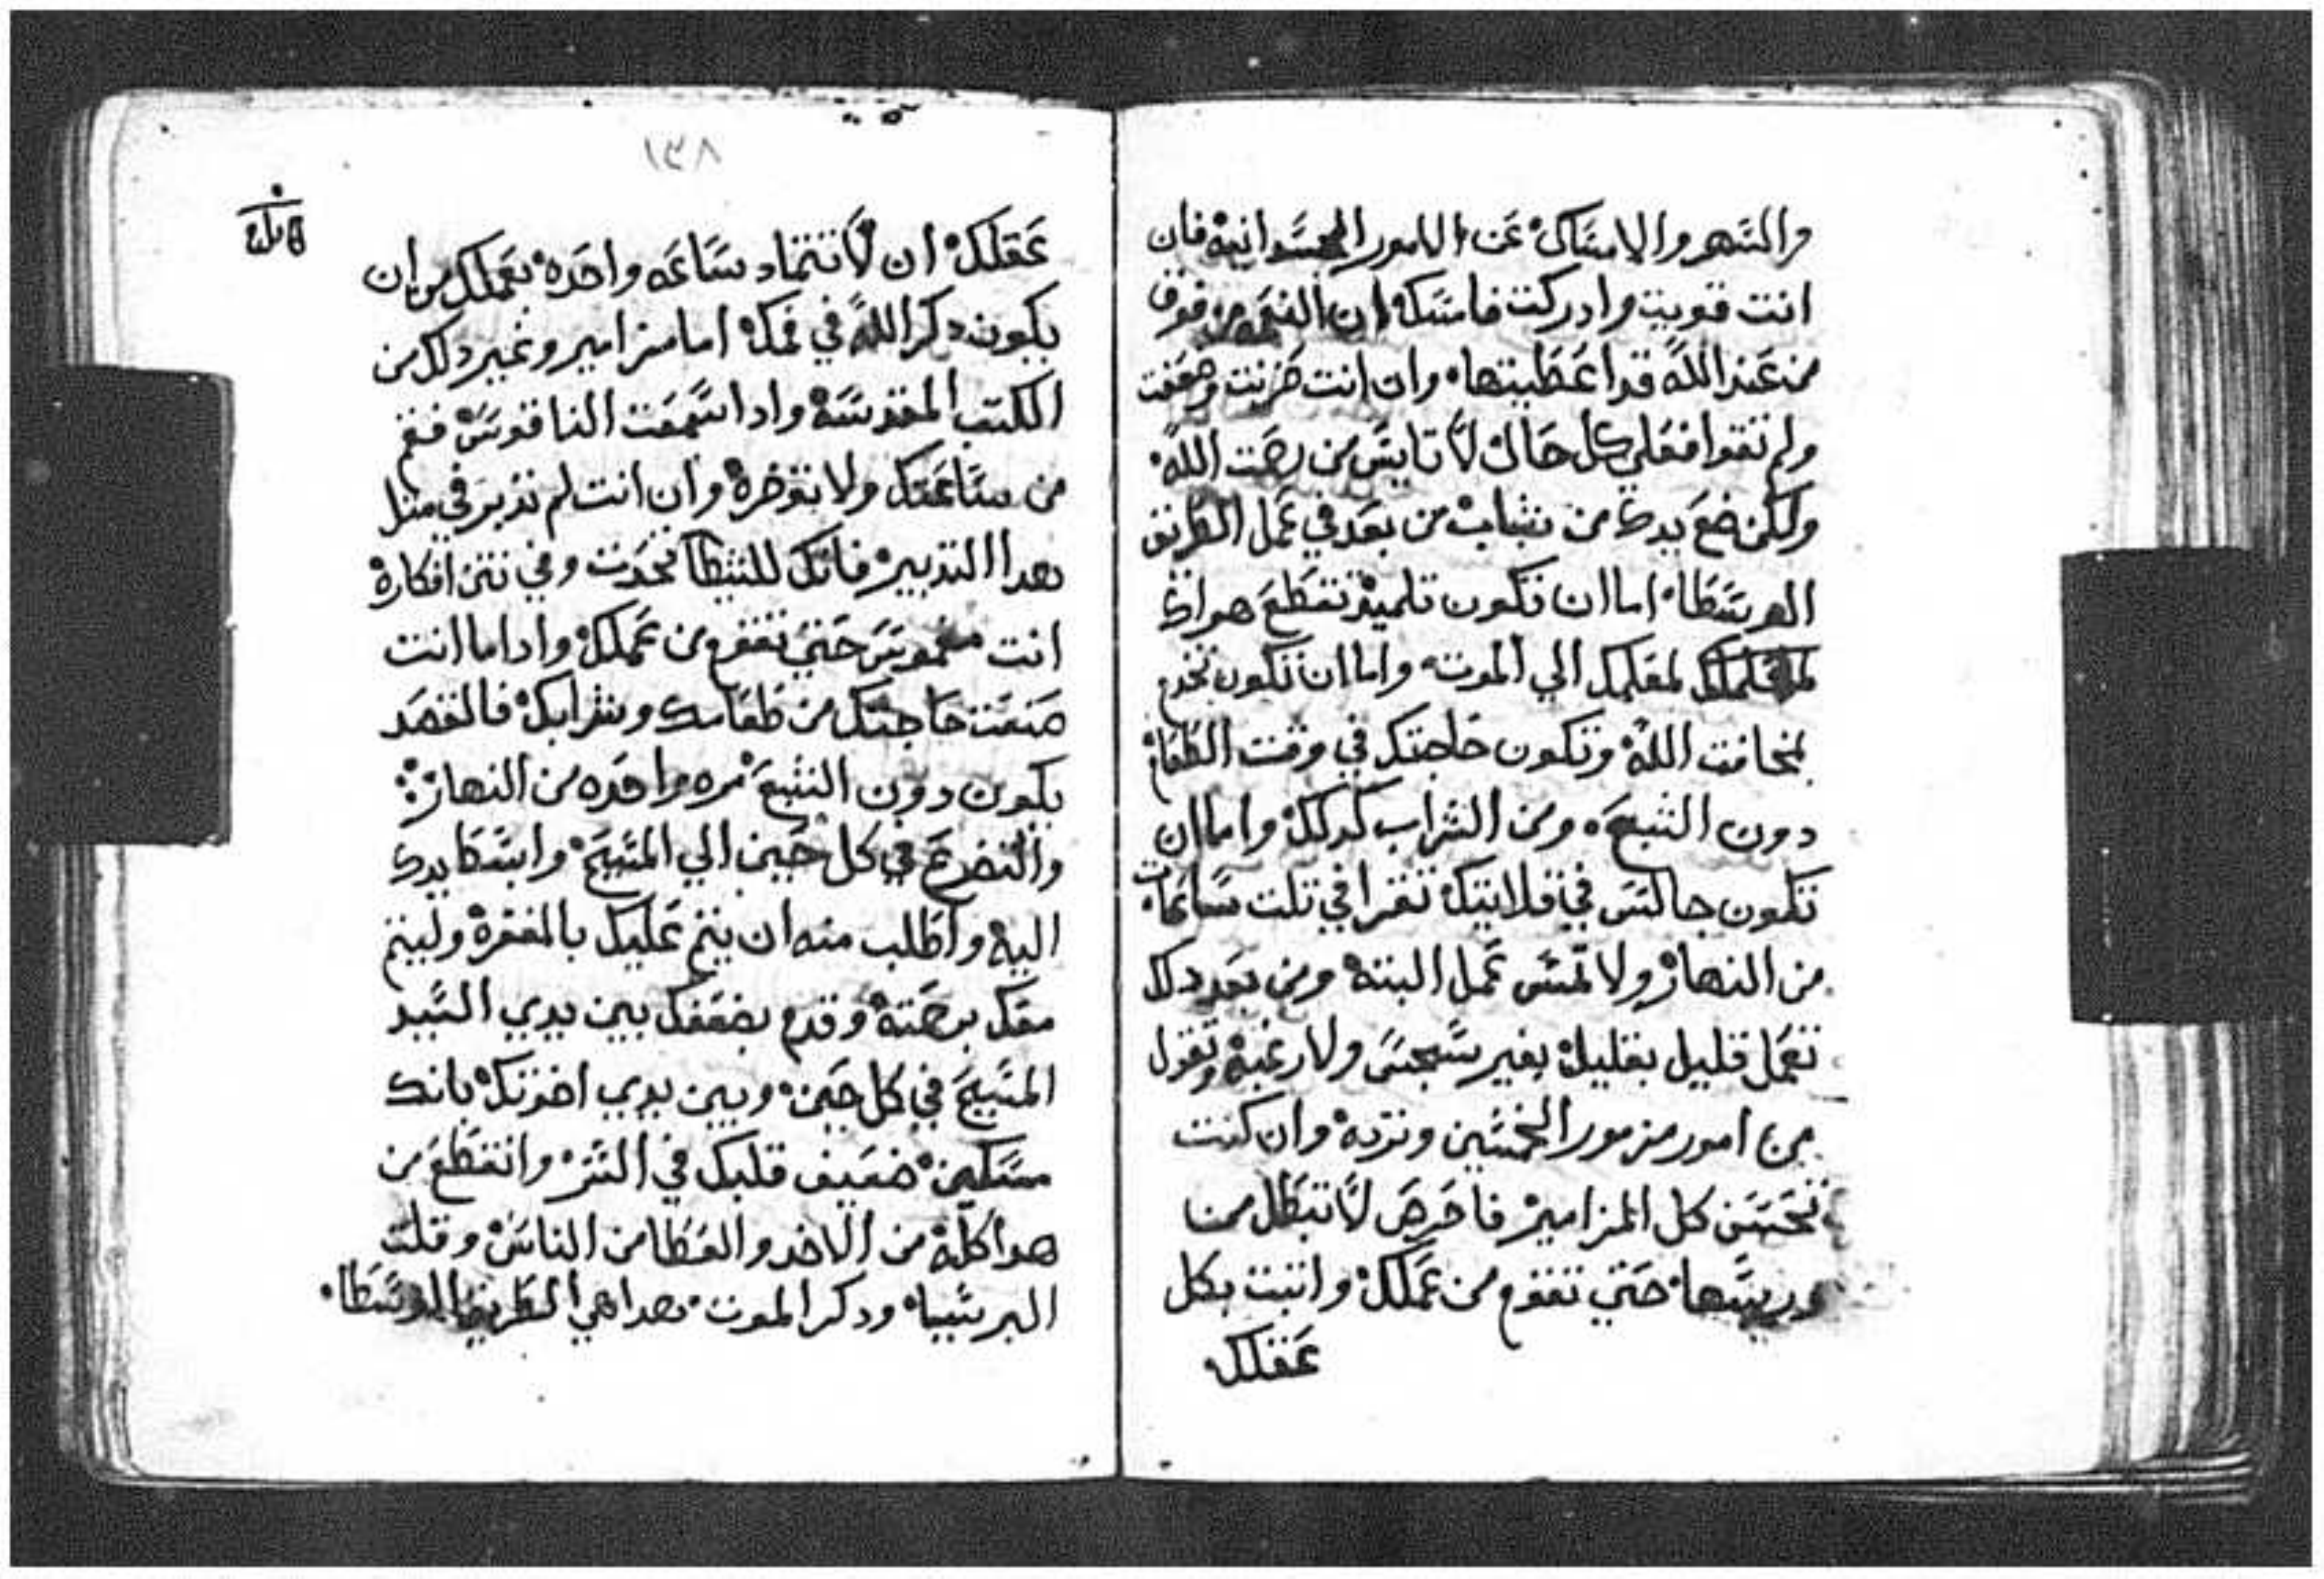 والسهر والامساك عن الامور الجسدانيه فان
انت قويت وادركت فامسكه ان النعمه من فوق
من عند الله قد اعطيتها وان انت حزنت وضعفت
ولم تقوا فعلي كل حال لا تايس من رحمت الله
ولكن ضع يدك من شباب من بعد في عمل الطريق
الوسطا اما ان تكون تلميذ تقطع هواك
لمعلمك الي الموت واما ان تكون تخدم
بمخافت الله وتكون حاجتك في وقت الطعام
دون الشبع ومن الشراب كدلك واما ان
تكون جالس في قلايتك تقرا في تلت ساعات
من النهار ولا تمس عمل البته ومن بعد دلك
تعمل قليل بقليل بغير سجس ولا رغبه وتقول
من امور مزمور الخمسين وترده وان كنت
تحسن كل المزامير فاحرص لا تبطل من
دريسها حتي تقوم من عملك واتبت بكل
عقلك
١٣٨
عقلك ان لا تتماد ساعه واحده بعملك من ان
يكون دكر الله في فمك اما مزامير وغير دلك من
الكتب المقدسه وادا سمعت الناقوس فقم
من ساعتك ولا توخره وان انت لم تدبر في متل
هدا التدبير فانك للشيطان تحدت وفي نتن افكاره
انت مغموس حتي تقوم من عملك وادا ما انت
صنعت حاجتك من طعامك وشرابك فالمقصد
يكون دون الشبع مره واحده من النهار
والتضرع في كل حين الي المسيح وابسط يدك
اليه واطلب منه ان ينعم عليك بالمغفره وليتم
معك برحمته وقدم بضعفك بين يدي السيد
المسيح في كل حين وبين يدي اخوتك بانك
مسكين ضعيف قلبك في الستر وانقطع من
هواكله من الاخد والعطا من الناس وقلت
البر شيا ودكر الموت هدا هي الطريق الوسطا